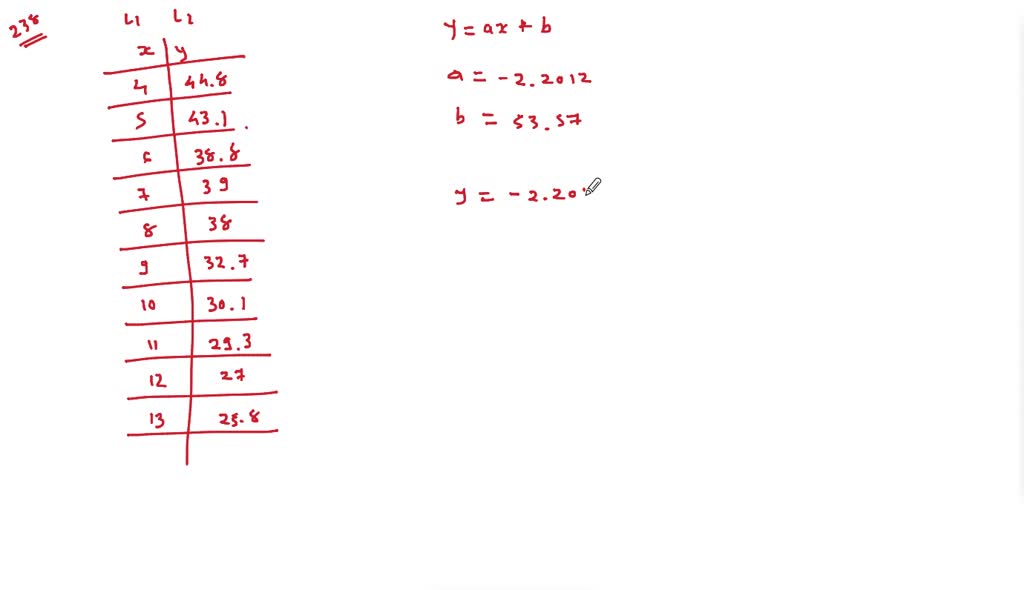 238
L1 L2
x y
4 44.8
5 43.1 .
6 38.8
7 39
8 38
9 32.7
10 30.1
11 29.3
12 27
13 25.8
y = ax + b
a = -2.2012
b = 53.57
y = -2.201